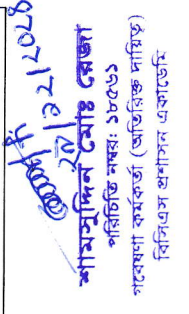 ২৮/১২/২০২৪
শামসুদ্দিন মোঃ রেজা
পরিচিতি নম্বর: ১৮৫৬১
গবেষণা কর্মকর্তা (অতিরিক্ত দায়িত্ব)
বিসিএস প্রশাসন একাডেমি